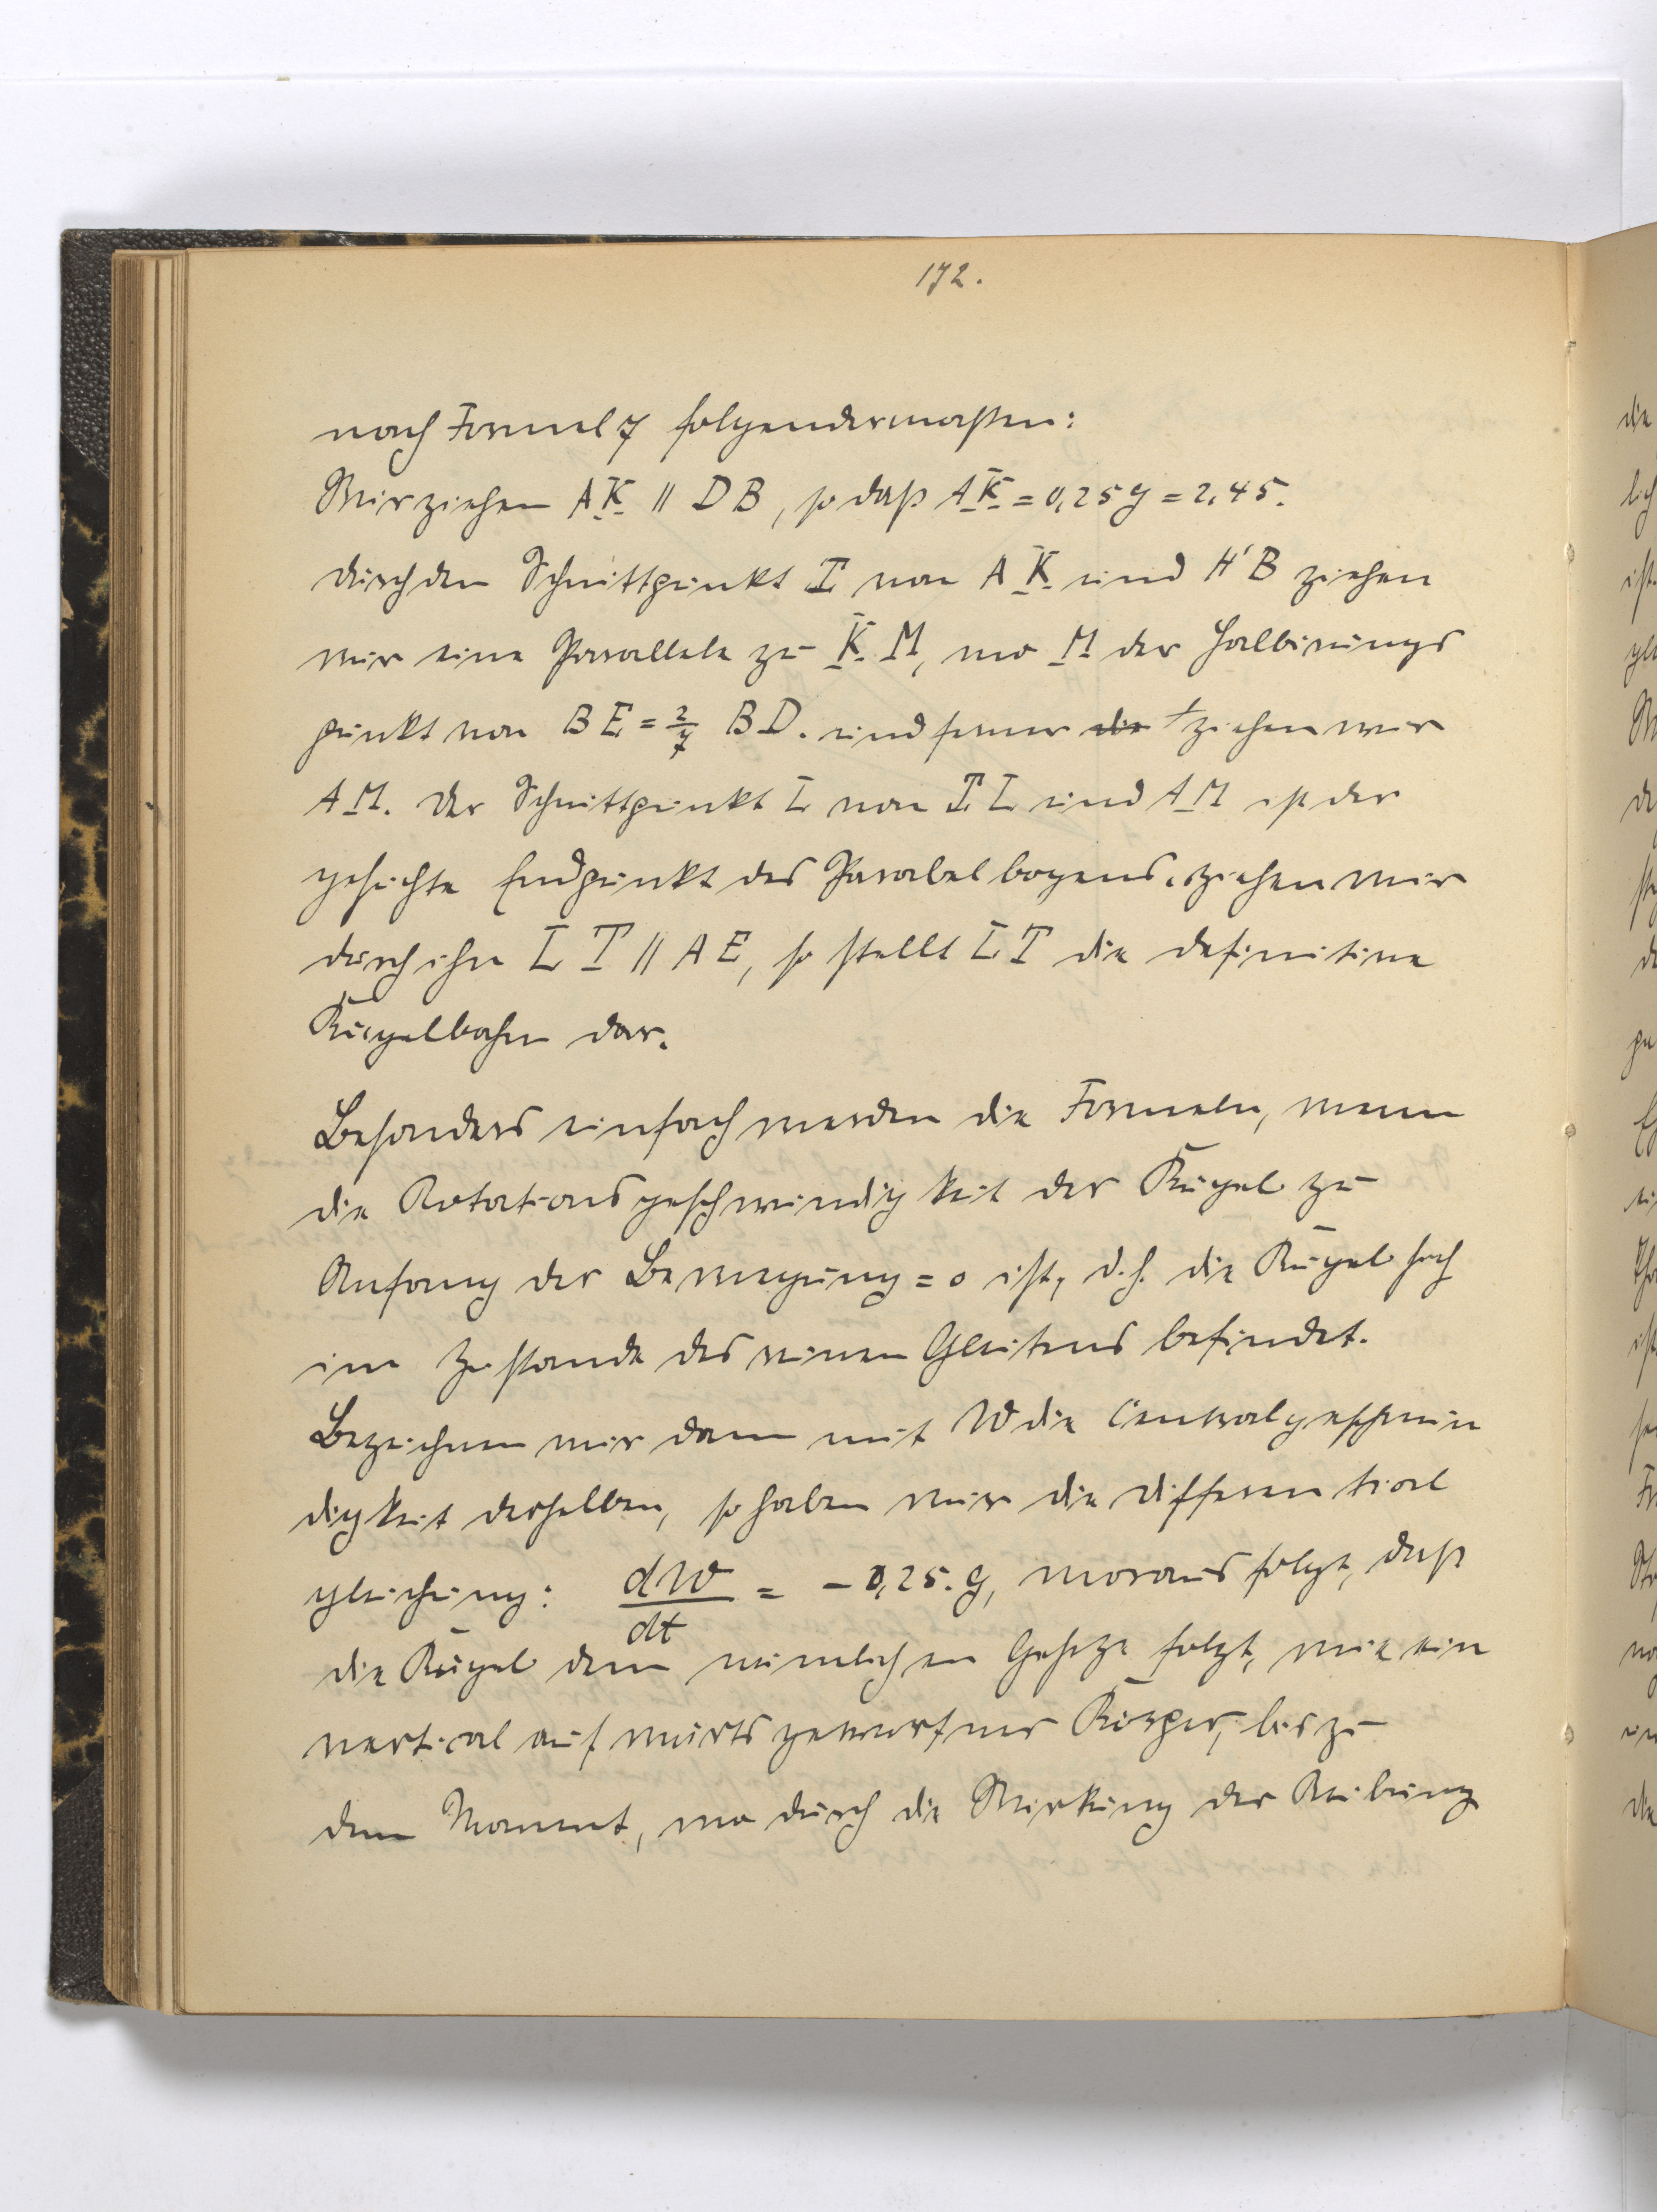 172.
nach Formel 7 folgendermaßen:
Wir ziehen AK // DB, so daß AK = 0,25 g = 2,45.
durch den Schnittpunkt I von AK und H'B ziehen
wir eine Parallele zu K M, wo M der Halbirungs
punkt von BE = 2/7 BD. und ferner die ziehen wir
AM. Der Schnittpunkt L von IL und AM ist der
gesuchte Endpunkt des Parabelbogens, ziehen wir
durch ihn L T // AE, so stellt LT die definitive
Kugelbahn dar.
Besonders einfach werden die Formeln, wenn
die Rotationsgeschwindigkeit der Kugel zu
Anfang der Bewegung = 0 ist, d.h. die Kugel sich
im Zustande des reinen Gleitens befindet.
Bezeichnen wir dann mit W die Centralgeschwin
digkeit derselben, so haben wir die Differential
gleichung: dW/dt = - 0,25. g, woraus folgt, daß
die Kugel dem nämlichen Gesetze folgt, wie ein
vertical aufwärts geworfner Körper, bis zu
dem Moment, wo durch die Wirkung der Reibung